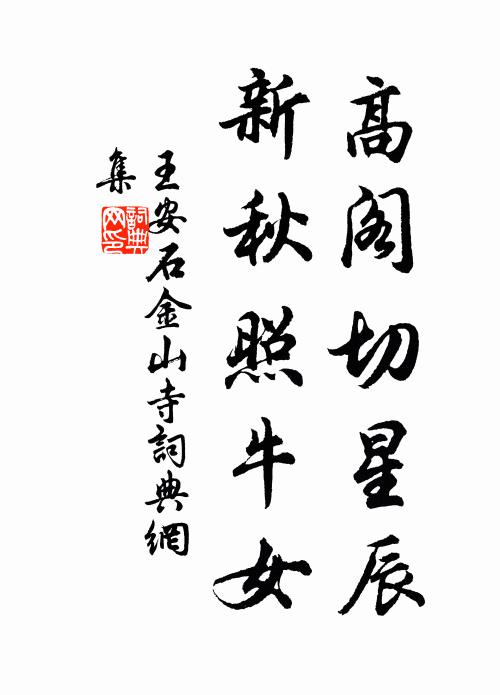 高阁切星辰
新秋照牛女
王安石金山寺詞典網
集
詞典网印